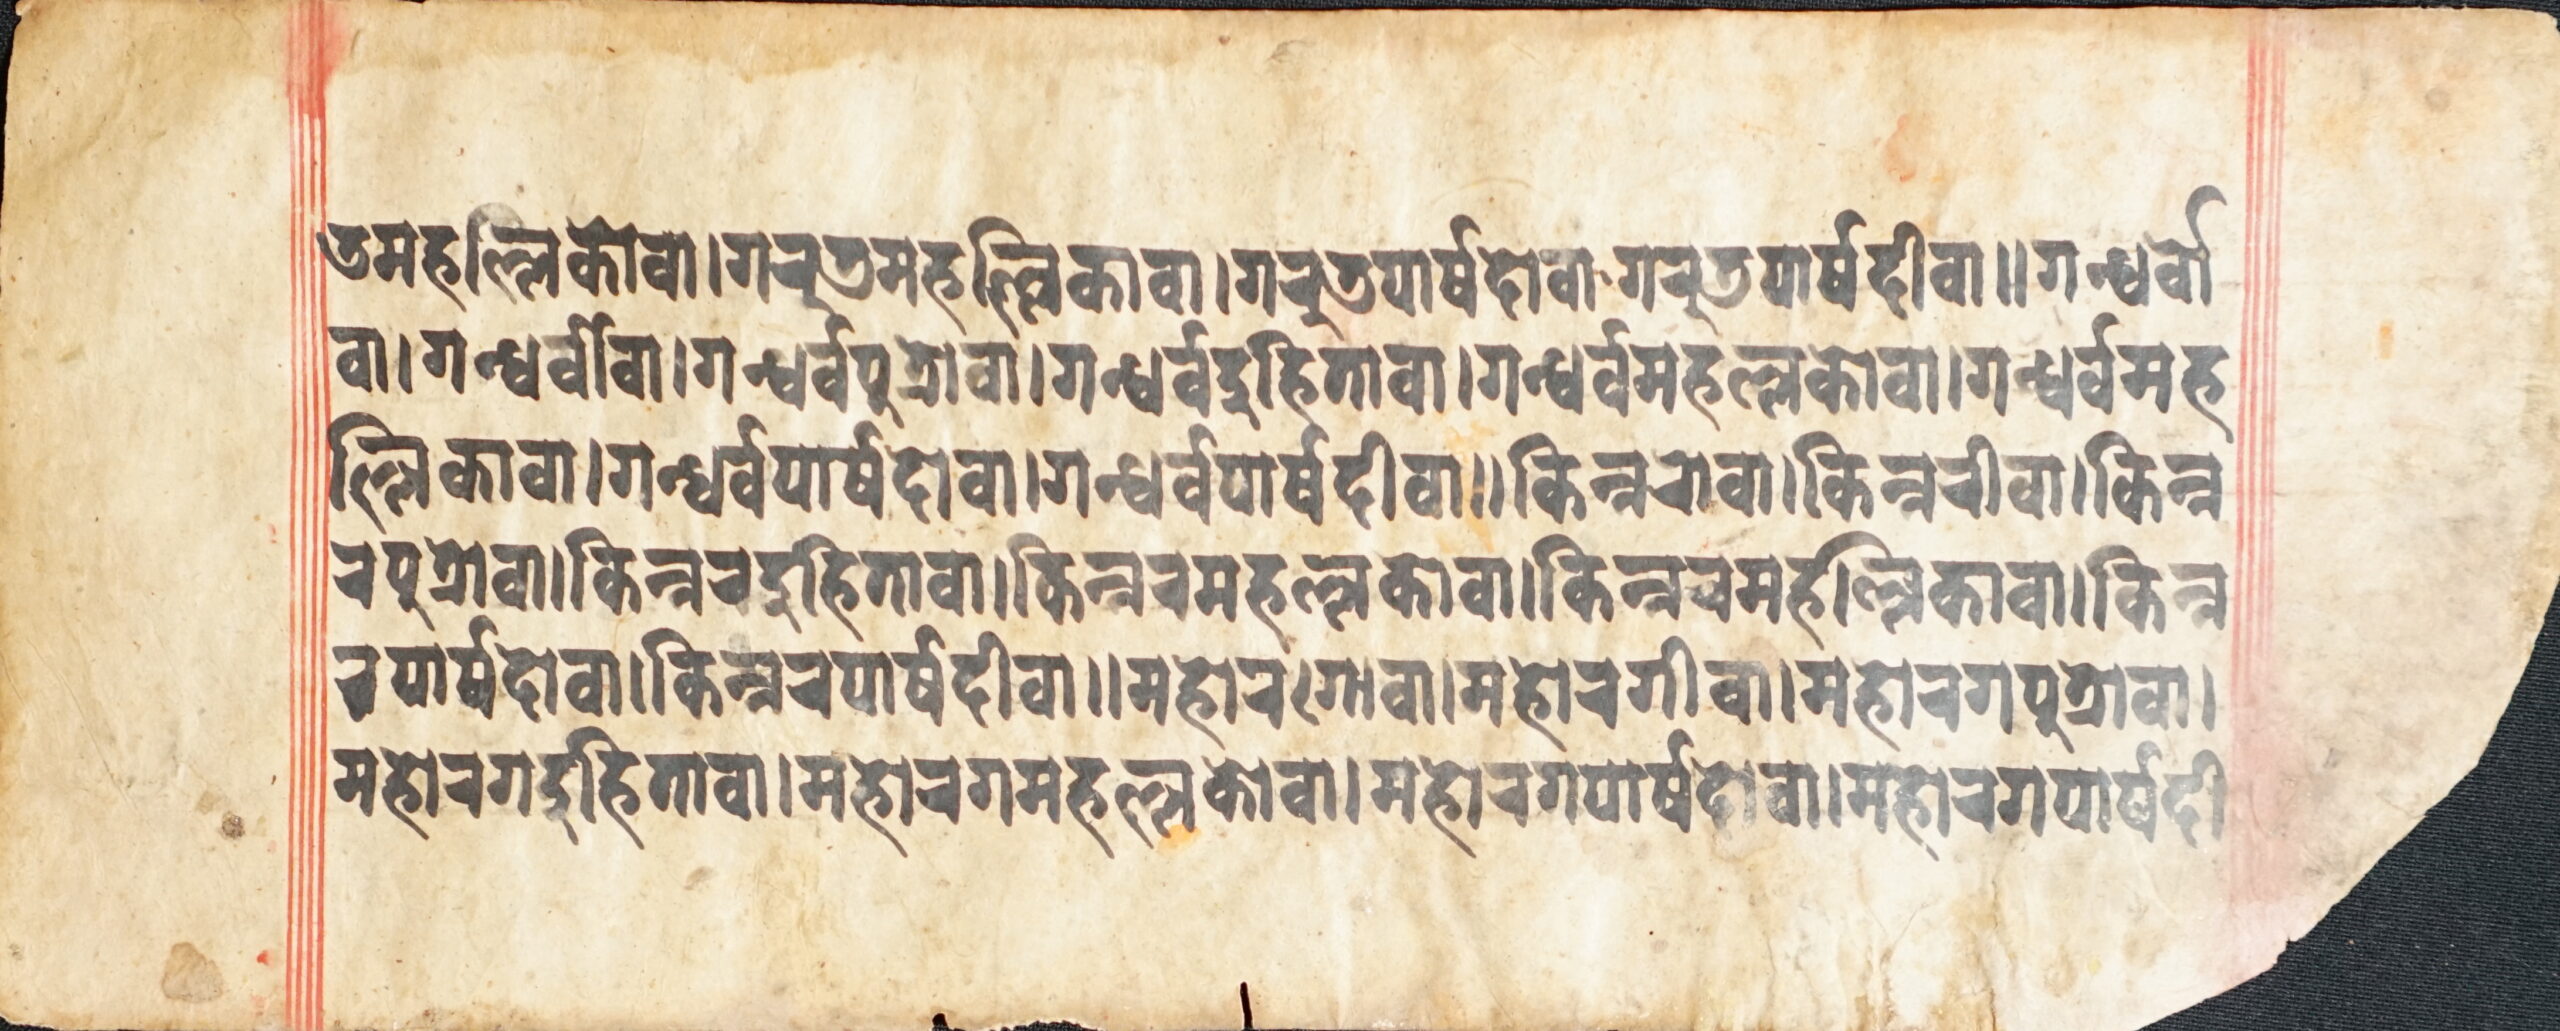 डमहल्लिकोवा।गरुडमहल्लिकावा।गरुडपार्षदोवा·गरुडपार्षदीवा॥गन्धर्वो
वा।गन्धर्वीवा।गन्धर्वपुत्रोवा।गन्धर्वदुहितावा।गन्धर्वमहल्लकोवा।गन्धर्वमह
ल्लिकावा।गन्धर्वपार्षदोवा।गन्धर्वपार्षदीवा॥किन्नरोवा।किन्नरीवा।किन्न
रपुत्रोवा।किन्नरदुहितावा।किन्नरमहल्लकोवा।किन्नरमहल्लिकावा।किन्न
रपार्षदोवा।किन्नरपार्षदीवा॥महोरगोवा।महोरगीवा।महोरगपुत्रोवा।
महोरगदुहितावा।महोरगमहल्लकोवा।महोरगपार्षदोवा।महोरगपार्षदी